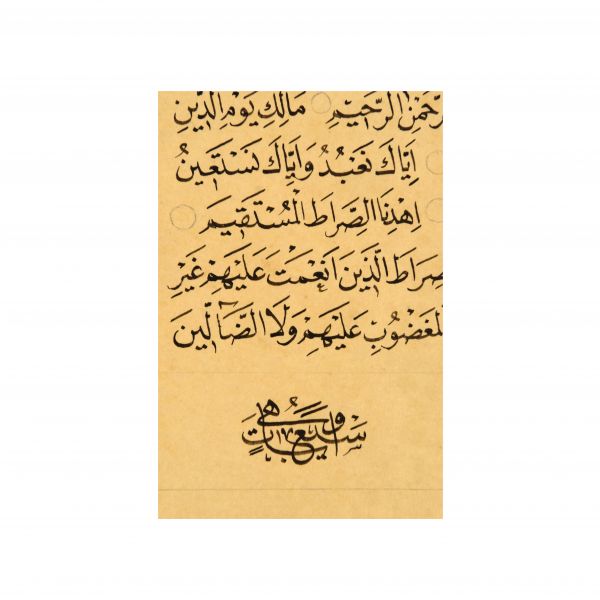 رَّحْمٰنِ الرَّحِيْمِ مَالِكِ يَوْمِ الدِّيْنِ
اِيَّاكَ نَعْبُدُ وَاِيَّاكَ نَسْتَعِيْنُ
اِهْدِنَا الصِّرَاطَ الْمُسْتَقِيْمَ
صِرَاطَ الَّذِيْنَ اَنْعَمْتَ عَلَيْهِمْ غَيْرِ
لْمَغْضُوْبِ عَلَيْهِمْ وَلَا الضَّآلِّيْنَ